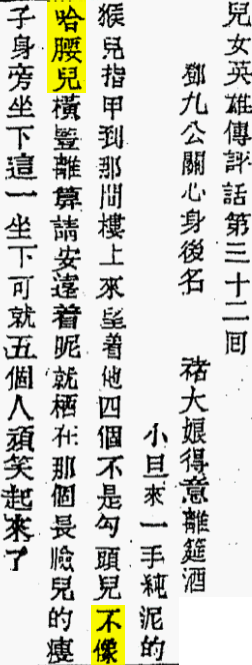 兒女英雄傳評話第三十二囘
鄧九公關心身後名　褚大娘得意離筵酒
小旦來一手純泥的
猴兒指甲到那間樓上來望着他四個不是勾頭兒不像
哈腰兒橫豎離算請安遠着呢就栖在那個長臉兒的瘦
子身旁坐下這一坐下可就五個人頑笑起來了